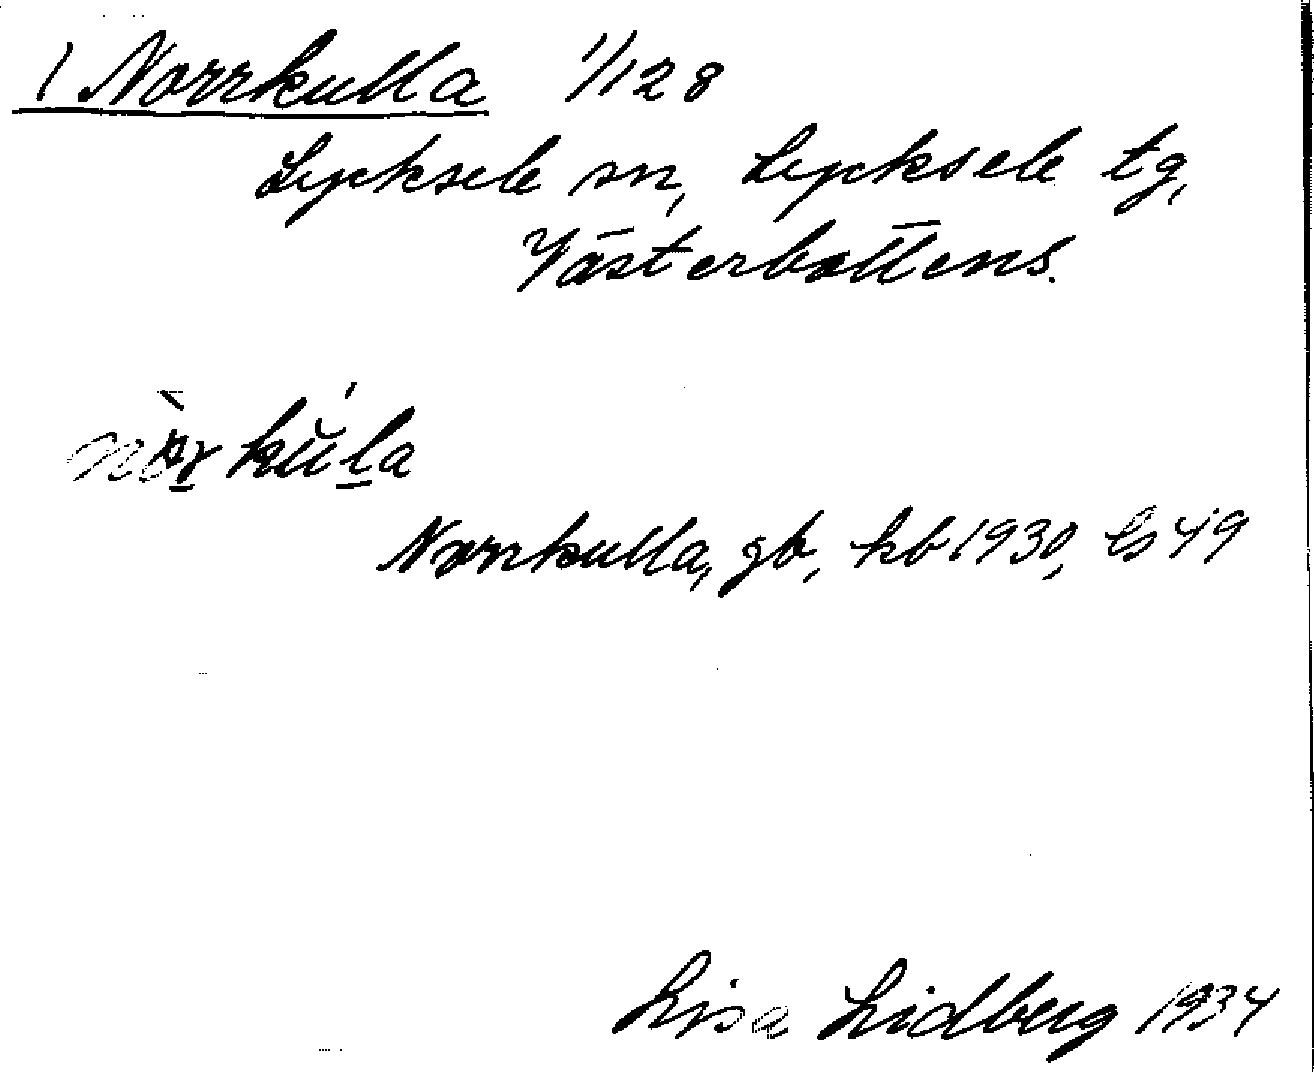 1 Norrkulla 1/128
Lycksele sn, Lycksele tg,
Västerbottens.
kŭla
Norrkulla, gb, kb 1930, ls 49
Lisa Lidberg 1934